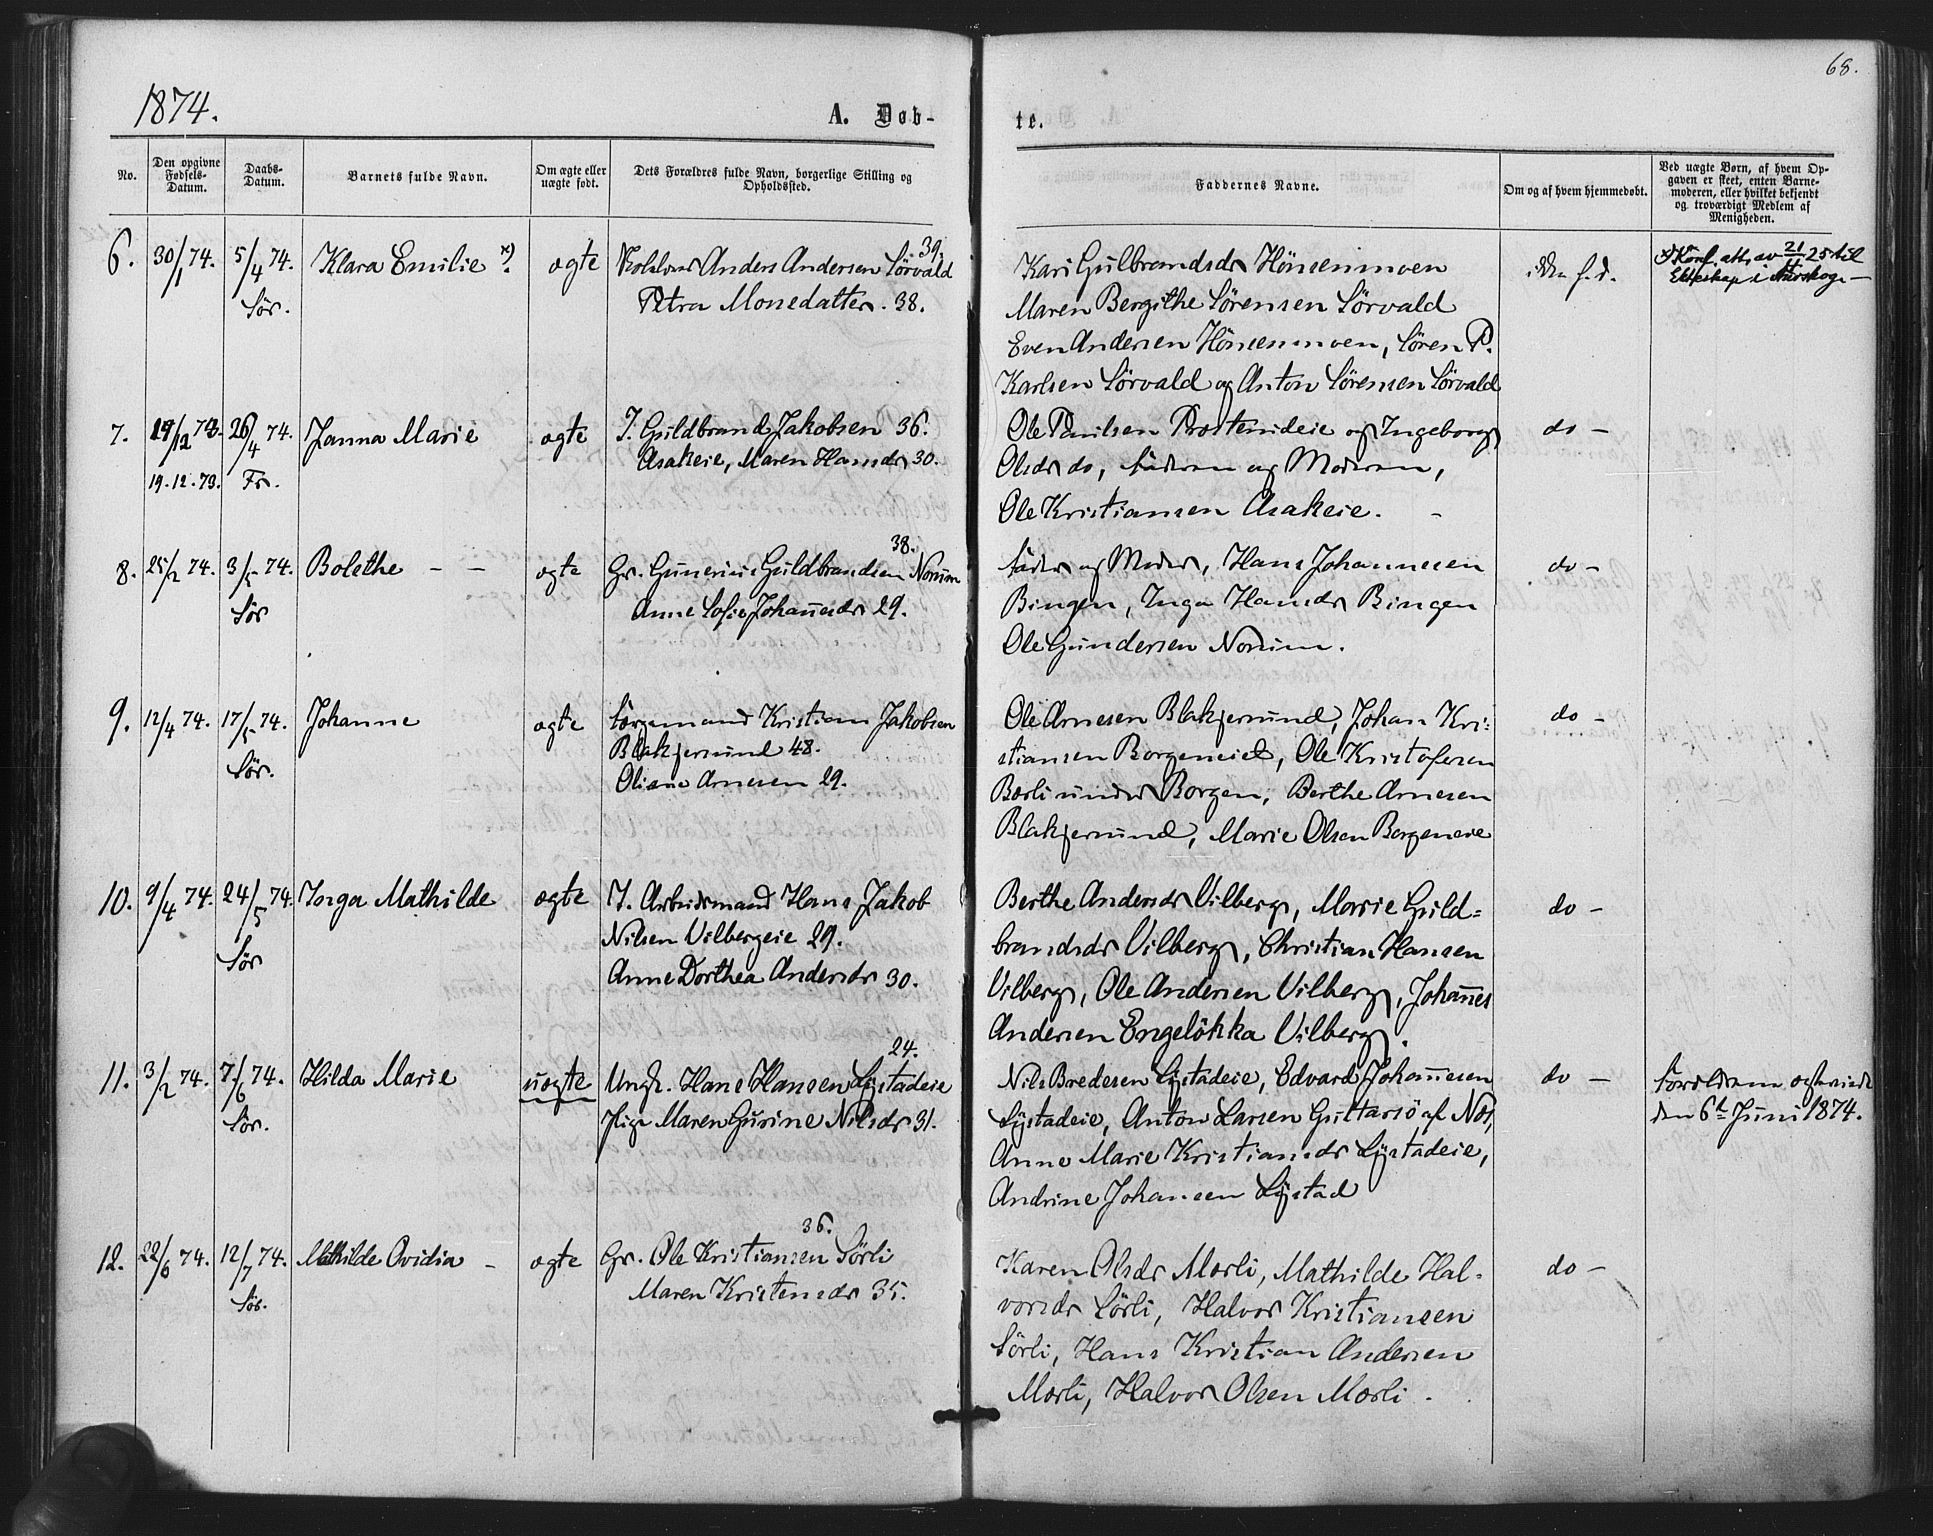 68.
1874.
A. Døb-
te.
No.
Den opgivne Fødsels-Datum.
Daabs-Datum.
Barnets fulde Navn.
Om ægte eller uægte født.
Dets Forældres fulde Navn, borgerlige Stilling og Opholdssted.
Faddernes Navne.
Om og af hvem hjemmedøbt.
Ved uægte Børn, af hvem Op-
gaven er skeet, enten Barne-
moderen, eller hvilket bekjendt
og troværdigt Medlem af
Menigheden.
6. 30/1 74. 5/4 74. Klara Emilie x) ægte Anders Andersen Sörvald 39.
Sör. Petra Monsdatter. 38.
Kari Gulbrandsdr Hönsenmoen
Maren Bergithe Sörensen Sörvald
Even Andersen Hönsenmoen, Sören P.
Karlsen Sörvald og Anton Sörensen Sörvald
Ikke f. d.
x) Konf. att. av 21/4 25 til
Ekteskap i Aurskog. —
7. 19/12 73. 26/4 74. Janna Marie ægte I. Guldbrand Jakobsen 36.
19.12.73. Fr. Asakeie, Maren Hansdr 30.
Ole Paulsen Præsteneie og Ingeborg
Olsdr do, Faderen og Moderen,
Ole Kristiansen Asakeie. -
do -
8. 25/2 74. 3/5 74. Bolethe - - ægte Gr. Gunerius Guldbrandsen Norum 38.
Sör Anne Sofie Johannesdr 29.
Fader og Moder, Hans Johannesen
Bingen, Inga Hansdr Bingen
Ole Gundersen Norum.
do -
9. 12/4 74. 17/5 74. Johanne ægte Kristian Jakobsen
Sör. Blakjerund 48.
Oliane Arnesen 29.
Ole Arnesen Blakjerund, Johan Kri-
stiansen Borgeneie, Ole Kristofersen
Bærli under Borgen, Berthe Arnesen
Blakjerund, Marie Olsen Borgeneie
do -
10. 9/4 74. 24/5 74. Inga Mathilde ægte I. Arbeidsmand Hans Jakob
Sör Nilsen Vilbergeie 29.
Anne Dorthea Andersdr 30.
Berthe Andersdr Vilberg, Marie Guld=
brandsdr Vilberg, Christian Hansen
Vilberg, Ole Andersen Vilberg, Johannes
Andersen Engelökka Vilberg.
do -
11. 3/2 74. 7/6 74. Hilda Marie uægte Ungk. Hans Hansen Lystadeie 24.
Sör. Pige Maren Gurine Nilsdr 31.
Nils Bredesen Lystadeie, Edvard Johannesen
Lystadeie, Anton Larsen Guttarsö af Næs,
Anne Marie Kristiansdr Lystadeie,
Andrine Johansen Lystad
do -
Forældrene ægteviede
den 6te Juni 1874.
12. 22/6 74. 12/7 74. Mathilde Ovidia - ægte Gr. Ole Kristiansen Sörli 36.
Sör. Maren Kristensdr 35.
Karen Olsdr Mærli, Mathilde Hal-
vorsdr Sörli, Halvor Kristiansen
Sörli, Hans Kristian Andersen
Mærli, Halvor Olsen Mærli -
do -